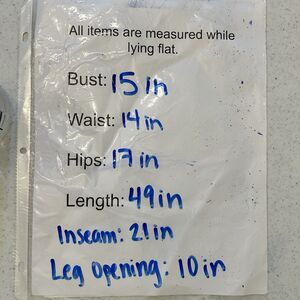 All items are measured while
lying flat.
Bust: 15 in
Waist: 14 in
Hips: 17 in
Length: 49 in
Inseam: 21 in
Leg Opening: 10 in